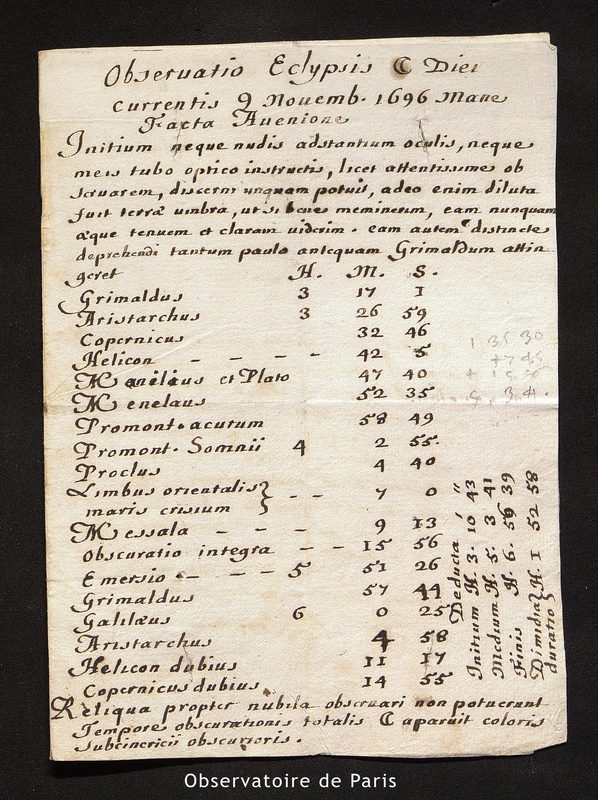 Observatio Eclypsis ☾ Diei
currentis 9 Novemb. 1696 Mane
Facta Avenione
Initium neque nudis adstantium oculis, neque
meis tubo optico instructis, licet attentissime ob
servarem, discerni unquam potuit, adeo enim diluta
fuit terræ umbra, ut si bene meminerim, eam nunquam
æque tenuem et claram viderim. eam autem distincte
deprehendi tantum paulo antequam Grimaldum attin
geret H. M. S.
Grimaldus 3 17 1
Aristarchus 3 26 59
Copernicus 32 46
Helicon - - - - 42 5
Manilius et Plato 47 40
Menelaus 52 35
Promont. acutum 58 49
Promont. Somnii 4 2 55.
Proclus 4 40
Limbus orientalis
maris crisium } - - 7 0
Messala - - 9 13
Obscuratio integra - - 15 56
Emersio - - - - 5 51 26
Grimaldus 57 44
Galilæus 6 0 25
Aristarchus 4 58
Helicon dubius 11 17
Copernicus dubius 14 55
Reliqua propter nubila observari non potuerunt
Tempore obscurationis totalis ☾ aparuit coloris
subcinericii obscurioris.
Deducta ' "
Initium H. 3. 10 43
Medium H. 5. 3 41
Finis H. 6. 56 39
Dimidia
duratio } H. 1 52 58
Observatoire de Paris